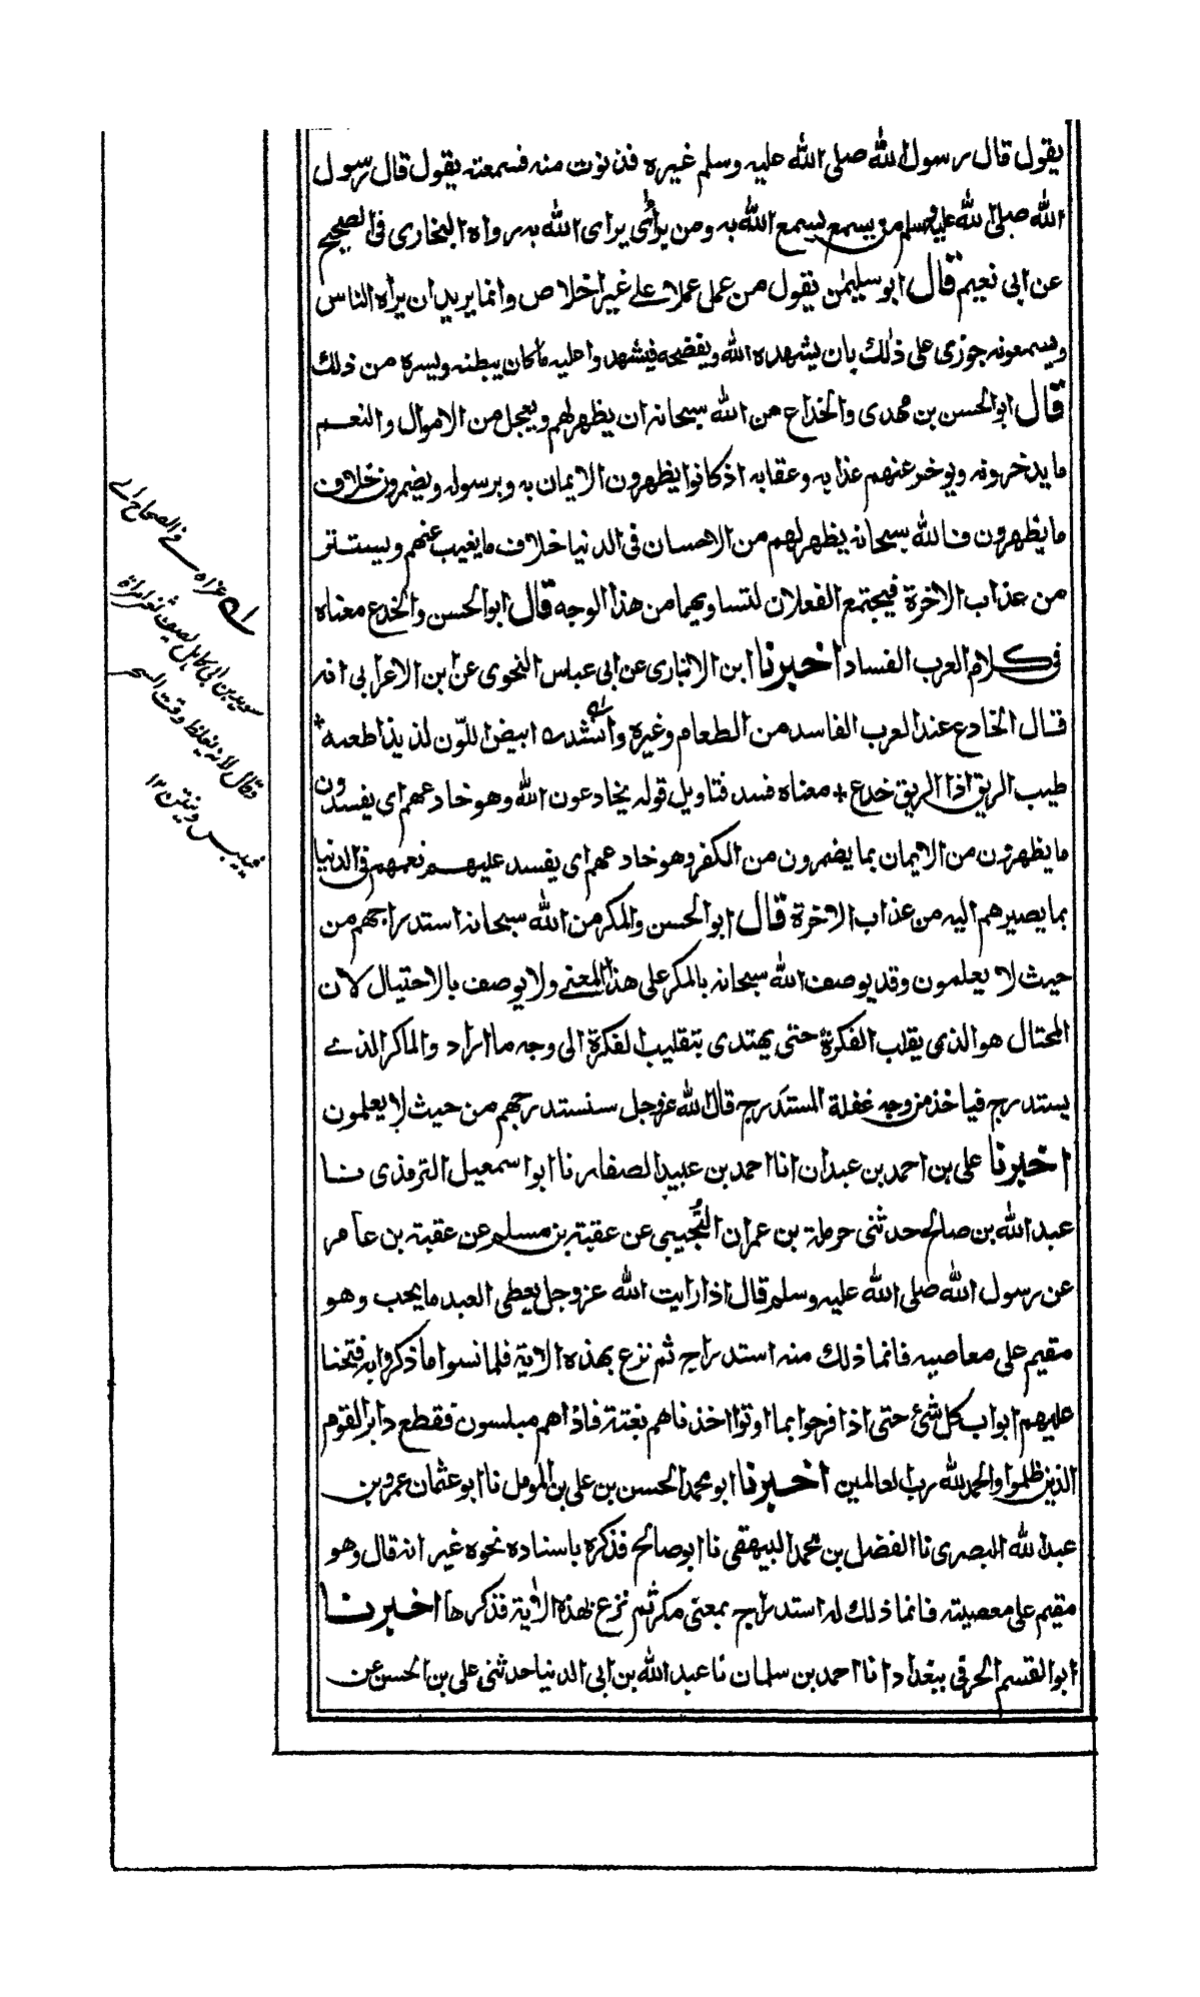 يقول قال رسول الله صلى الله عليه وسلم غيره فدنوت منه فسمعته يقول قال رسول
الله صلى الله عليه وسلم من يسمع يسمع الله به ومن يرائى يراى الله به رواه البخارى فى الصحيح
عن ابى نعيم قال ابو سليمٰن يقول من عمل عملا على غير اخلاص وانما يريد ان يراه الناس
ويسمعونه جوزى على ذلك بان يشهده الله ويفضحه فيشهدوا عليه ما كان يبطنه ويسره من ذلك
قال ابو الحسن بن مهدى والخداع من الله سبحانه ان يظهر لهم ويعجل من الاموال والنعم
ما يدخرونه ويوخر عنهم عذابه وعقابه اذ كانوا يظهرون الايمان به وبرسوله ويضمرون خلاف
ما يظهرون فالله سبحانه يظهر لهم من الاحسان فى الدنيا خلاف ما يغيب عنهم ويستتر
من عذاب الاخرة فيجتمع الفعلان لتساويهما من هذا الوجه قال ابو الحسن والخدع معناه
فى كلام العرب الفساد اخبرنا ابن الانبارى عن ابى عباس النحوى عن ابن الاعرابى انه
قال الخادع عند العرب الفاسد من الطعام وغيره وانشد ابيض اللون لذيذا طعمه
طيب الريق اذا الريق خدع + معناه فسد فتاويل قوله يخادعون الله وهو خادعهم اى يفسدون
ما يظهرون من الايمان بما يضمرون من الكفر وهو خادعهم اى يفسد عليهم نعمهم فى الدنيا
بما يصيرهم اليه من عذاب الاخرة قال ابو الحسن والمكر من الله سبحانه استدراجهم من
حيث لا يعلمون وقد يوصف الله سبحانه بالمكر على هذا المعنى ولا يوصف بالاحتيال لان
المحتال هو الذى يقلب الفكرة حتى يهتدى بتقليب الفكرة الى وجه ما اراد والماكر الذے
يستدرج فياخذ من وجه غفلة المستدرج قال الله عز وجل سنستدرجهم من حيث لا يعلمون
اخبرنا على بن احمد بن عبدان انا احمد بن عبيد الصفار نا ابو اسمعيل الترمذى نا
عبد الله بن صالح حدثنى حرملة بن عمران التُّجيبى عن عقبة بن مسلم عن عقبة بن عامر
عن رسول الله صلى الله عليه وسلم قال اذا رايت الله عز وجل يعطى العبد ما يحب وهو
مقيم على معاصيه فانما ذلك منه استدراج ثم نزع بهذه الاية فلما نسوا ما ذكروا به فتحنا
عليهم ابواب كل شئ حتى اذا فرحوا بما اوتوا اخذناهم بغتة فاذا هم مبلسون فقطع دابر القوم
الذين ظلموا والحمد لله رب العالمين اخبرنا ابو محمد الحسن بن على بن المومل نا ابو عثمان عمرو بن
عبد الله البصرى نا الفضل بن محمد البيهقى نا ابو صالح فذكره باسناده نحوه غير انه قال وهو
مقيم على معصيته فانما ذلك له استدراج بمعنى مكر ثم نزع بهذه الاية فذكرها اخبرنا
ابو القسم الحرقى ببغداد انا احمد بن سلمان نا عبد الله بن ابى الدنيا حدثنى على بن الحسن عن
عزاه فے الصحاح اے
سويد بن ابى كاهل يصف ثغر امراة
وقال لانه يغلظ وقت السحر
فييبس وينتن ١٢